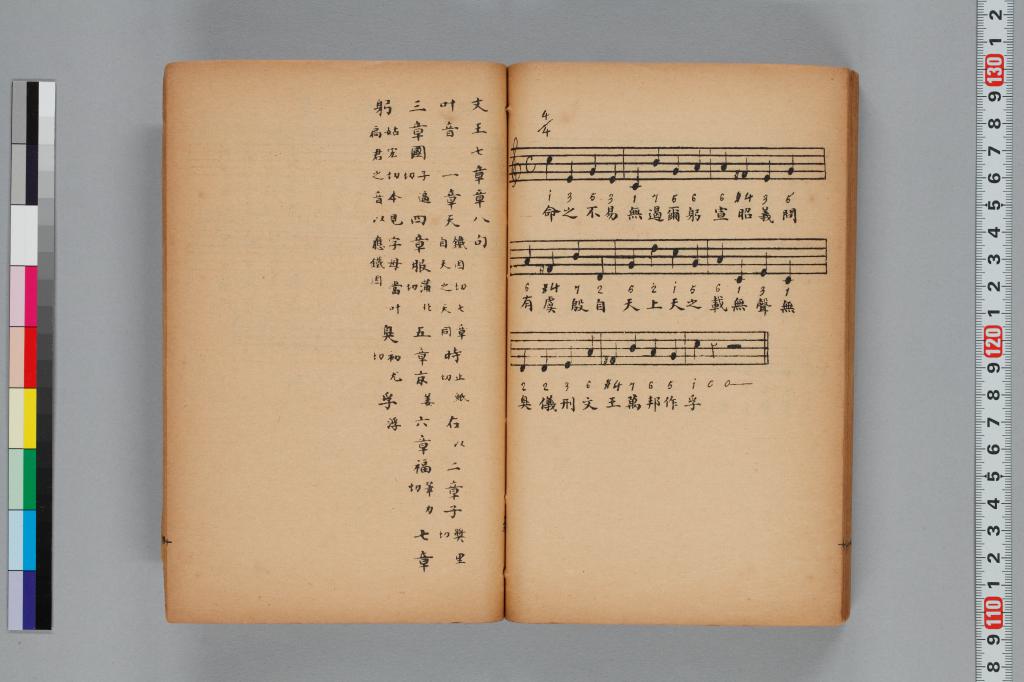 4/4
i 3 5 3 1 7 5 6 6 #4 3 5
命之不易無遏爾躬宣昭義問
6 #4 7 2 6 2 i 5 6 1 3 1
有虞殷自天上天之載無聲無
2 2 3 6 #4 7 6 5 i 0 0
臭儀刑文王萬邦作孚
文王七章章八句
叶音 一章天 鐵因切七章自天之天同 時 止紙切 在 以 二章子 獎里切
三章國 子逼切 四章服 蒲北切 五章京 姜 六章福 筆力切 七章
躬 姑宏切本見字母當叶扃君之音以應鐵因 臭 初尤切 孚 浮
130
120
110